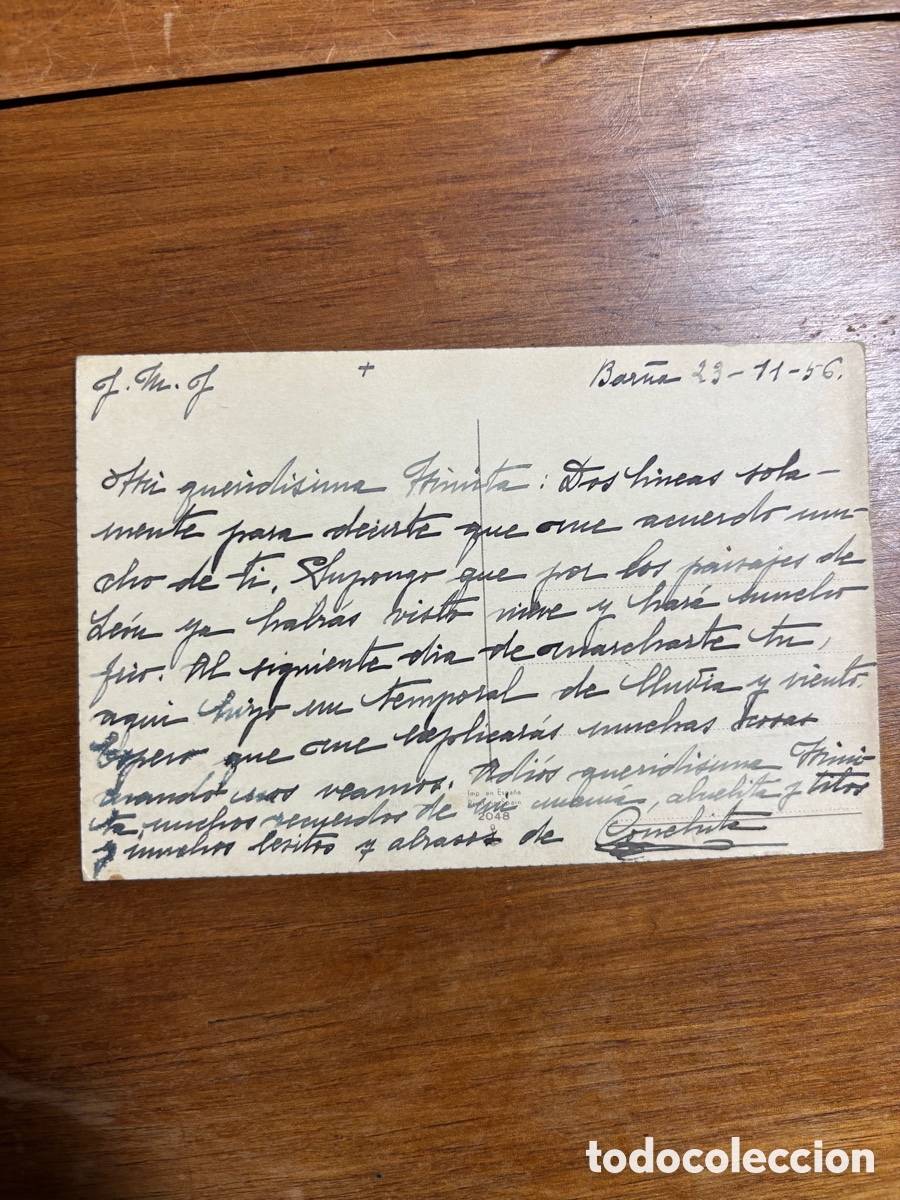 J. M. J + Barña 23-11-56.
Mi queridisima Mimita: Dos lineas sola-
mente para decirte que me acuerdo mu-
cho de ti. Supongo que por los paisajes de
León ya habrás visto nieve y hará mucho
frio. Al siguiente dia de marcharte tu,
aqui hizo un temporal de lluvia y viento.
Espero que me explicarás muchas cosas
cuando nos veamos. Adiós queridisima Mimi
ta, muchos recuerdos de mi mamá, abuelita y titos
y muchos besitos y abrazos de Conchita
Imp. en España
2048
todocoleccion